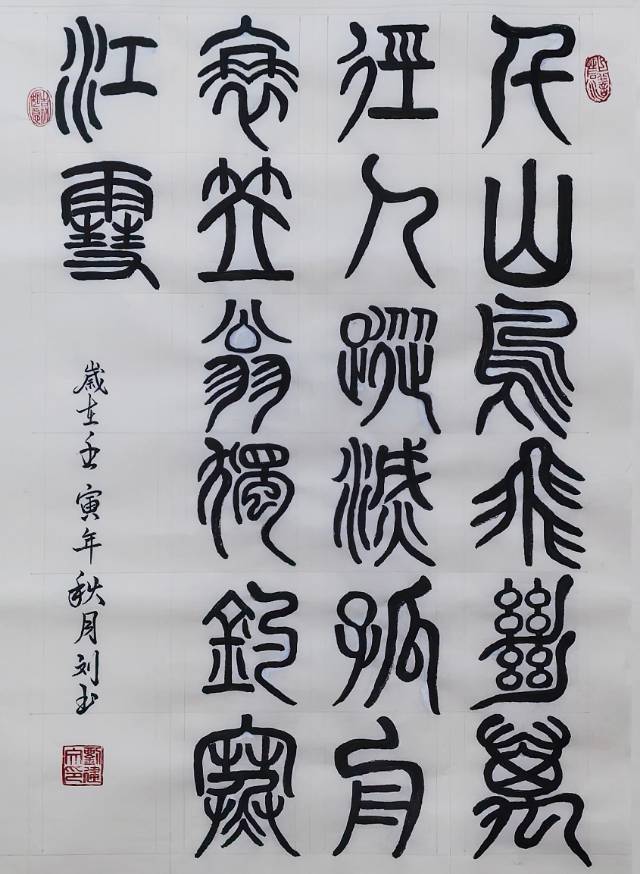 千山鳥飛絕萬
徑人蹤滅孤舟
蓑笠翁獨釣寒
江雪
歲在壬寅年秋月刘书